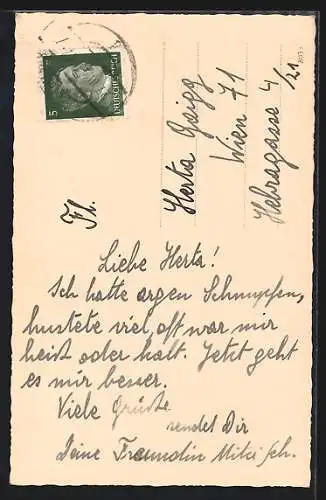 5
DEUTSCHES REICH
Frl.
Herta Gsigg
Wien 71
Hebragasse 4
/21
Liebe Herta!
Ich hatte argen Schnupfen,
hustete viel, oft war mir
heiß oder kalt. Jetzt geht
es mir besser.
Viele Grüße
sendet Dir
Deine Freundin Mitzi Sch.